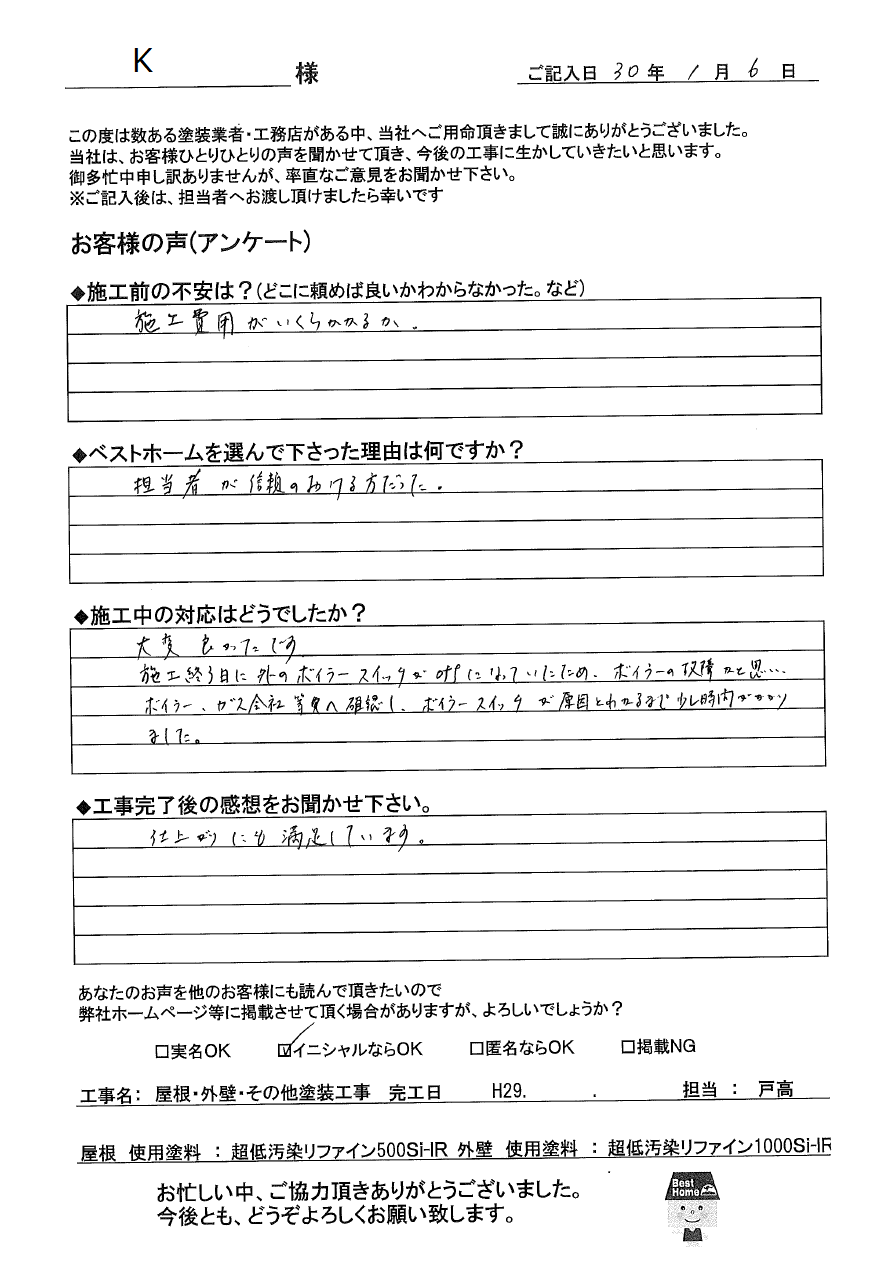 K 様 ご記入日 30年 1月 6日
この度は数ある塗装業者・工務店がある中、当社へご用命頂きまして誠にありがとうございました。
当社は、お客様ひとりひとりの声を聞かせて頂き、今後の工事に生かしていきたいと思います。
御多忙中申し訳ありませんが、率直なご意見をお聞かせ下さい。
※ご記入後は、担当者へお渡し頂けましたら幸いです
お客様の声(アンケート)
◆施工前の不安は？(どこに頼めば良いかわからなかった。など)
施工費用がいくらかかるか.
◆ベストホームを選んで下さった理由は何ですか？
担当者が信頼のおける方だった.
◆施工中の対応はどうでしたか？
大変良かったです
施工終了日に外のボイラースイッチがoffになっていたため、ボイラーの故障かと思い…
ボイラー、ガス会社等へ確認し、ボイラースイッチが原因とわかるまで少し時間がかかり
ました。
◆工事完了後の感想をお聞かせ下さい。
仕上がりにも満足しています。
あなたのお声を他のお客様にも読んで頂きたいので
弊社ホームページ等に掲載させて頂く場合がありますが、よろしいでしょうか？
□実名OK ☑イニシャルならOK □匿名ならOK □掲載NG
工事名： 屋根・外壁・その他塗装工事 完工日 H29. . 担当 ： 戸高
屋根 使用塗料 ： 超低汚染リファイン500Si-IR 外壁 使用塗料 ： 超低汚染リファイン1000Si-IR
お忙しい中、ご協力頂きありがとうございました。
今後とも、どうぞよろしくお願い致します。
Best
Home